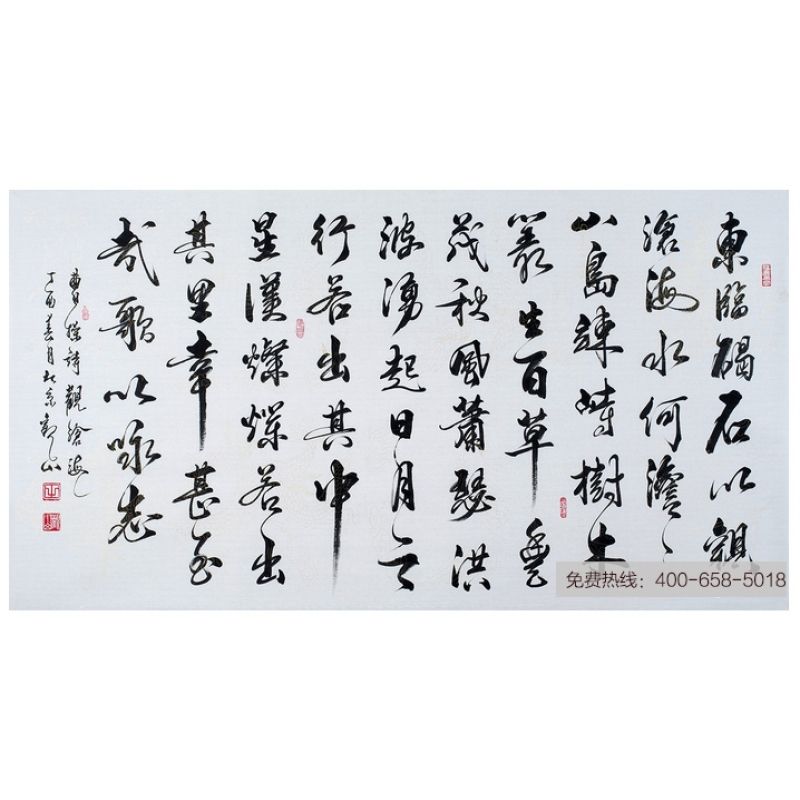 東臨碣石以觀
滄海水何澹〻
山島竦峙樹木
叢生百草豐
茂秋風蕭瑟洪
波湧起日月之
行若出其中
星漢燦爛若出
其里幸甚至
哉歌以咏志
曹操詩觀滄海
丁酉 月 京
免费热线：400-658-5018